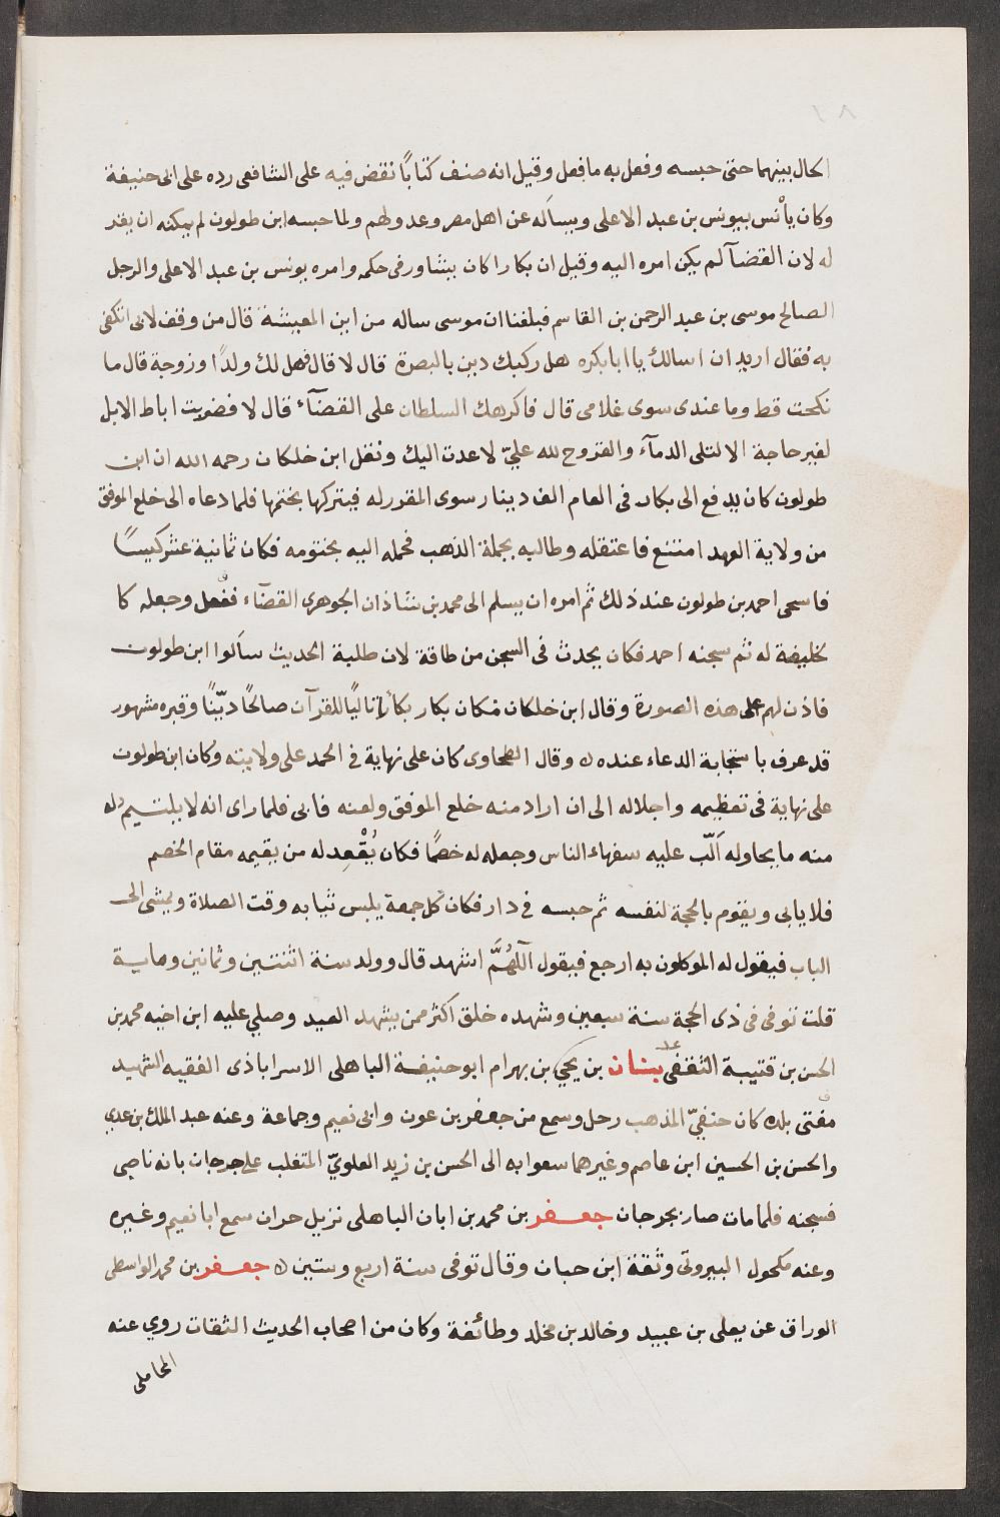 الحال بينهما حتى حبسه وفعل به ما فعل وقيل انه صنف كتاباً نقض فيه على الشافعى رده على ابى حنيفة
وكان يأنس بيونس بن عبد الاعلى ويسأله عن اهل مصر وعدولهم ولما حبسه ابن طولون لم يمكنه ان يعذ
له لان القضآ لم يكن امره اليه وقيل ان بكارا كان يشاور فى حكمه وامره يونس بن عبد الاعلى والرجل
الصالح موسى بن عبد الرحمن بن القاسم فبلغنا ان موسى ساله من اين المعيشة قال من وقف لابى اتكفى
به فقال اريد ان اسالك يا ابا بكره هل ركبك دين بالبصرة قال لا قال فهل لك ولدًا وزوجة قال ما
نكحت قط وما عندى سوى غلامى قال فاكرهك السلطان على القضآء قال لا فضربت اباط الابل
لغير حاجة الا لتلى الدمآء والفروج لله علىّ لا عدت اليك ونقل ابن خلكان رحمه الله ان ابن
طولون كان يدفع الى بكار فى العام الف دينار سوى المقرر له فيتركها بختمها فلما دعاه الى خلع الموفق
من ولاية العهد امتنع فاعتقله وطالبه بجملة الذهب فحمله اليه بختومه فكان ثمانية عشر كيسًا
فاسحى احمد بن طولون عند ذلك ثم امره ان يسلم الى محمد بن شاذان الجوهرى القضآء ففعل وجعله كا
لخليفة له ثم سجنه احمد فكان يحدث فى السجن من طاقة لان طلبة الحديث سآلوا ابن طولون
فاذن لهم على هذه الصورة وقال ابن خلكان فكان بكار بكأا تاليًا للقرآن صالحًا ديّنًا وقبره مشهور
قد عرف باستجابة الدعاء عنده ه وقال الطحاوى كان على نهاية فى الحمد على ولايته وكان ابن طولون
على نهاية فى تعظيمه واجلاله الى ان اراد منه خلع الموفق ولعنه فابى فلما راى انه لا يلتيم له
منه ما يحاوله اَلّب عليه سفهاء الناس وجعله له خصمًا فكان يُقْعِد له من يقيمه مقام الخصم
فلا يابى ويقوم بالحجة لنفسه ثم حبسه فى دار فكان كل جمعة يلبس ثيابه وقت الصلاة ويمشى الى
الباب فيقول له الموكلون به ارجع فيقول اَللهُمَّ اشهد قال وولد سنة اثنتين وثمانين وماية
قلت توفى فى ذى الحجة سنة سبعين وشهده خلق اكثر ممن يشهد العيد وصلى عليه ابن اخيه محمد بن
الحسن بن قتيبة الثقفى بنان بن يحيى بن بهرام ابو حنيفة الباهلى الاسراباذى الفقيه الشهيد
مفتى بلده كان حنفىّ المذهب رحل وسمع من جعفر بن عون وابى نعيم وجماعة وعنه عبد الملك بن عدي
والحسن بن الحسين ابن عاصم وغيرهما سعوا به الى الحسن بن زيد العلوىّ المتغلب على جرجان بانه ناصبى
فسجنه فلما مات صار بجرجان جعفر بن محمد بن ابان الباهلى نزيل حران سمع ابا نعيم وغيره
وعنه مكحول البيروتى وثقة ابن حبان وقال توفى سنة اربع وستين ه جعفر بن محمد الواسطى
الوراق عن يعلى بن عبيد وخالد بن مخلد وطائفة وكان من اصحاب الحديث الثقات روي عنه
المحاملى